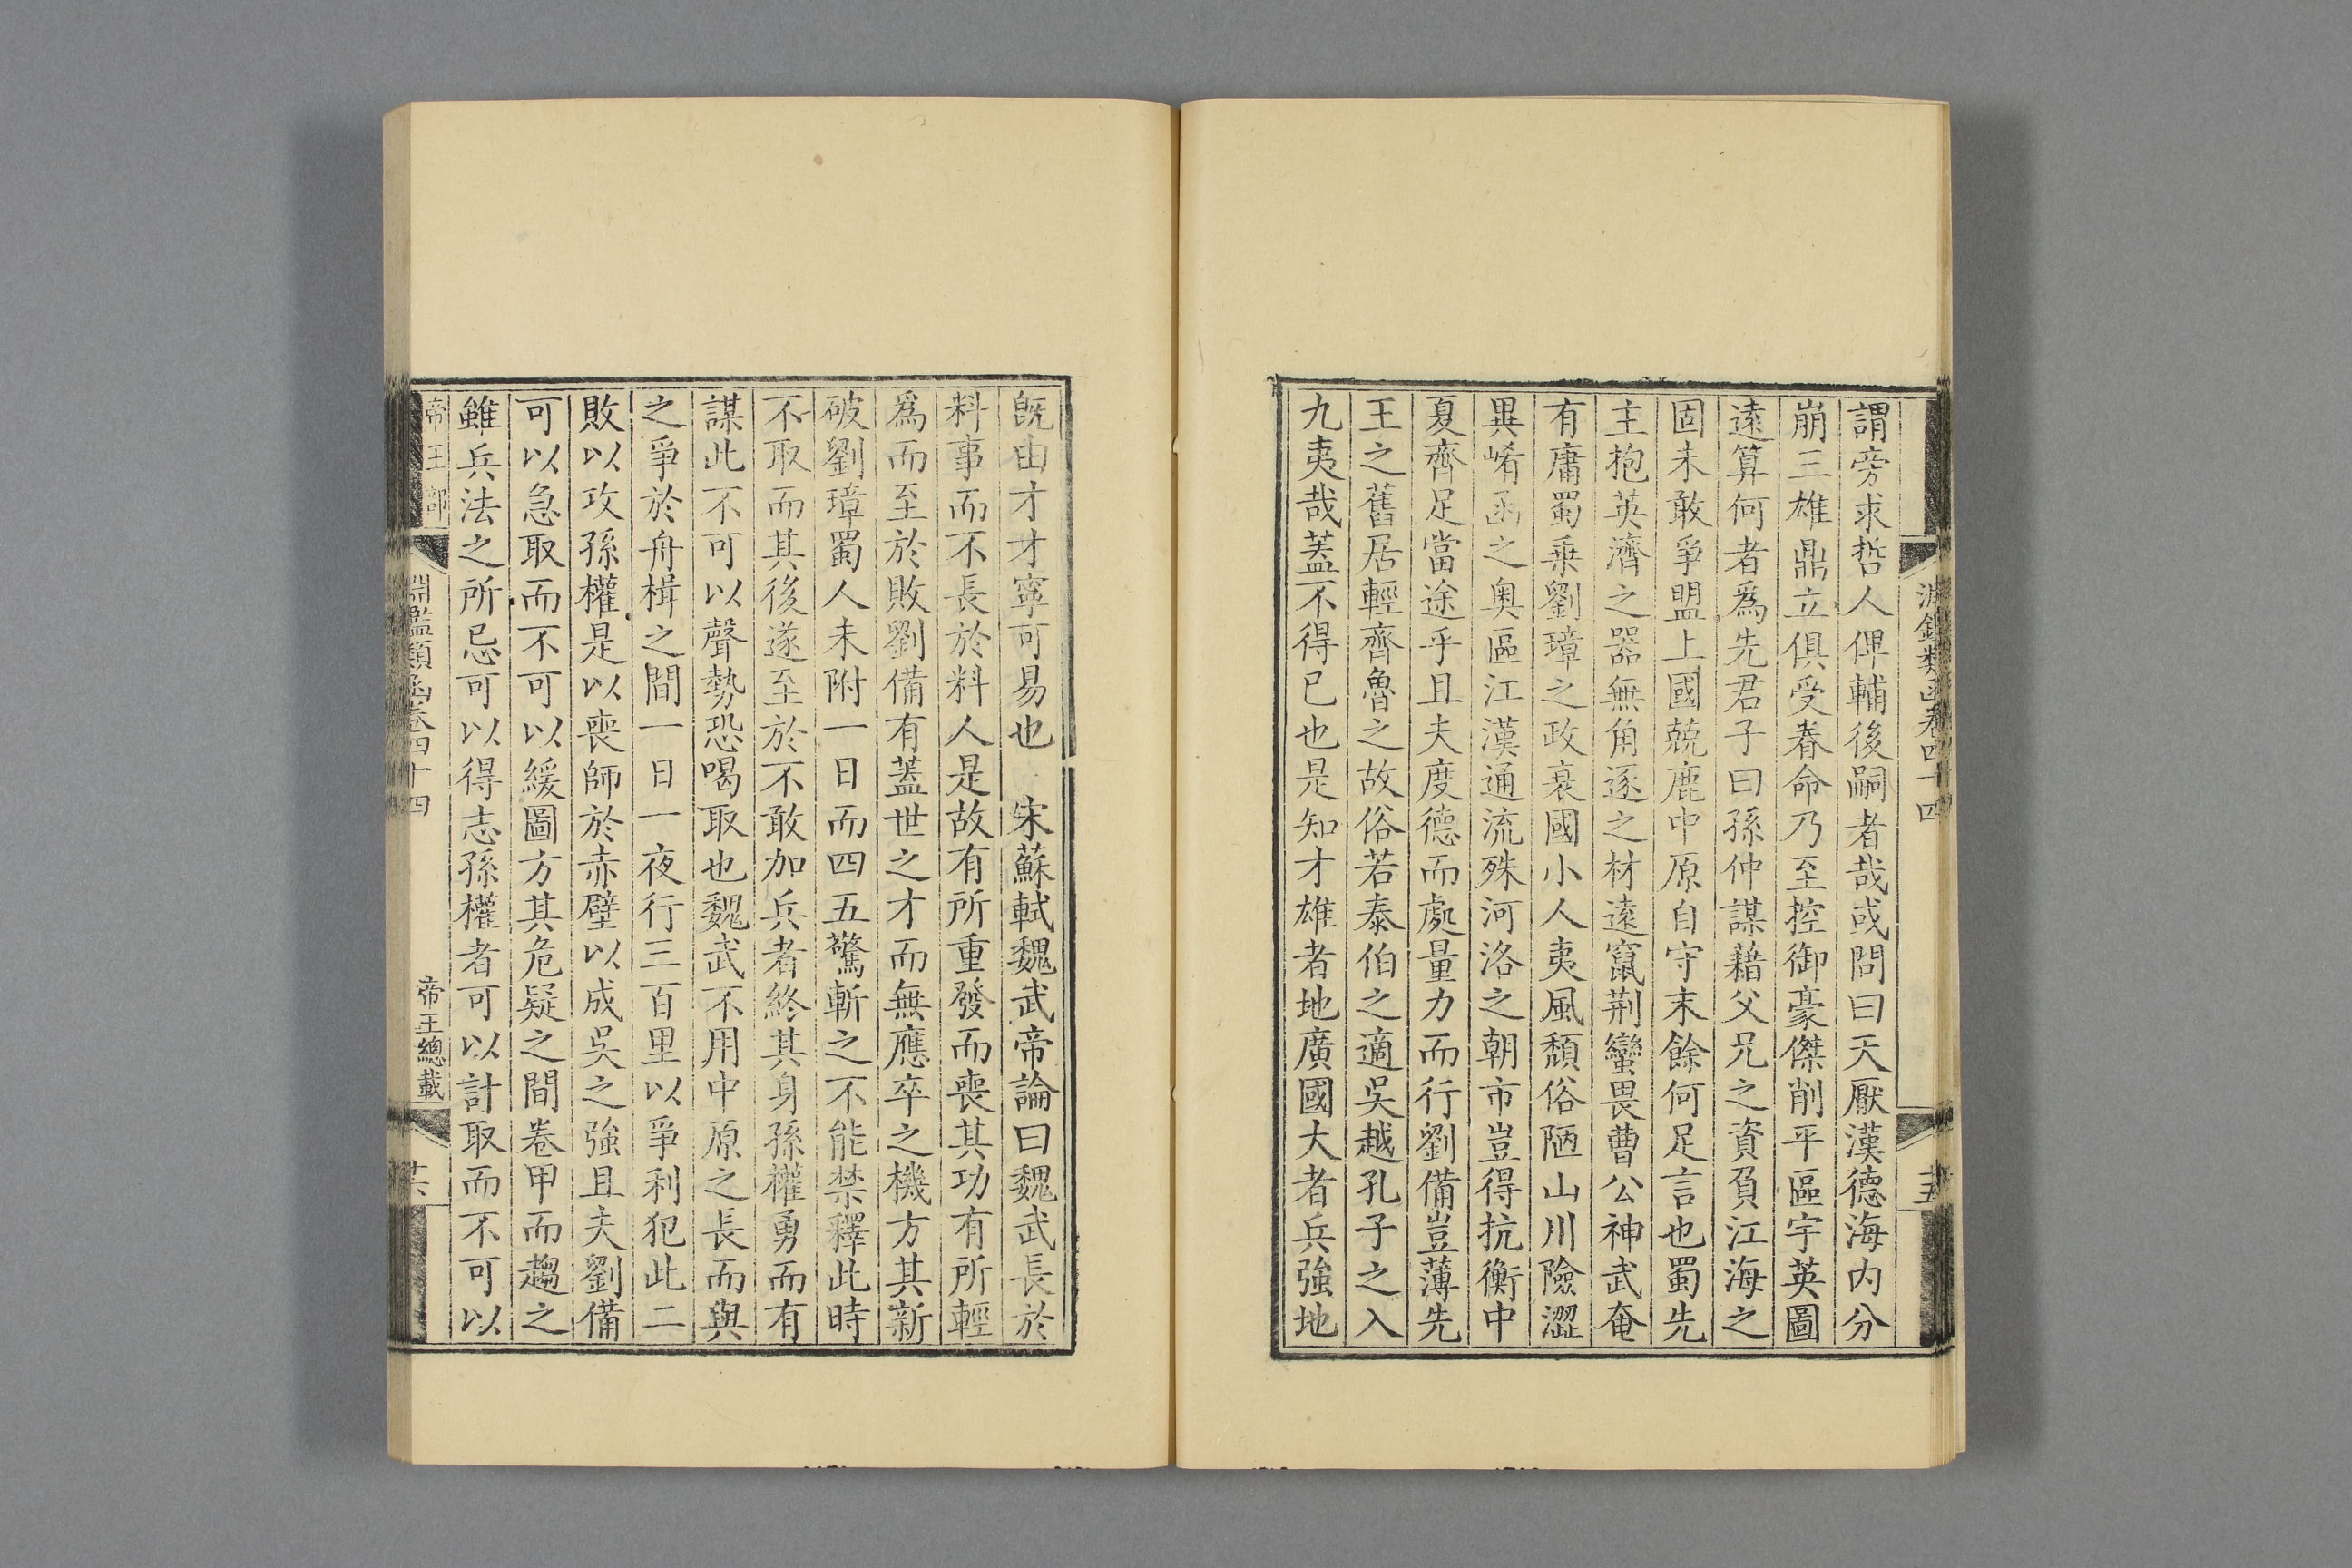 淵鑑類函卷四十四
謂旁求哲人俾輔後嗣者哉或問曰天厭漢德海内分
崩三雄鼎立俱受眷命乃至控御豪傑削平區宇英圖
遠算何者爲先君子曰孫仲謀藉父兄之資負江海之
固未敢爭盟上國兢鹿中原自守末餘何足言也蜀先
主抱英濟之器無角逐之材遠竄荆蠻畏曹公神武奄
有庸蜀乗劉璋之政衰國小人夷風頹俗陋山川險澀
異崤函之奥區江漢通流殊河洛之朝市豈得抗衡中
夏齊足當途乎且夫度德而處量力而行劉備豈薄先
王之舊居輕齊魯之故俗若泰伯之適吳越孔子之入
九夷哉蓋不得已也是知才雄者地廣國大者兵強地
既由才才寧可易也 宋蘇軾魏武帝論曰魏武長於
料事而不長於料人是故有所重發而喪其功有所輕
爲而至於敗劉備有蓋世之才而無應卒之機方其新
破劉璋蜀人未附一日而四五驚斬之不能禁釋此時
不取而其後遂至於不敢加兵者終其身孫權勇而有
謀此不可以聲勢恐喝取也魏武不用中原之長而與
之爭於舟楫之間一日一夜行三百里以爭利犯此二
敗以攻孫權是以喪師於赤壁以成吳之強且夫劉備
可以急取而不可以緩圖方其危疑之間卷甲而趨之
雖兵法之所忌可以得志孫權者可以計取而不可以
帝王部
淵鑑類函卷四十四
帝王總載